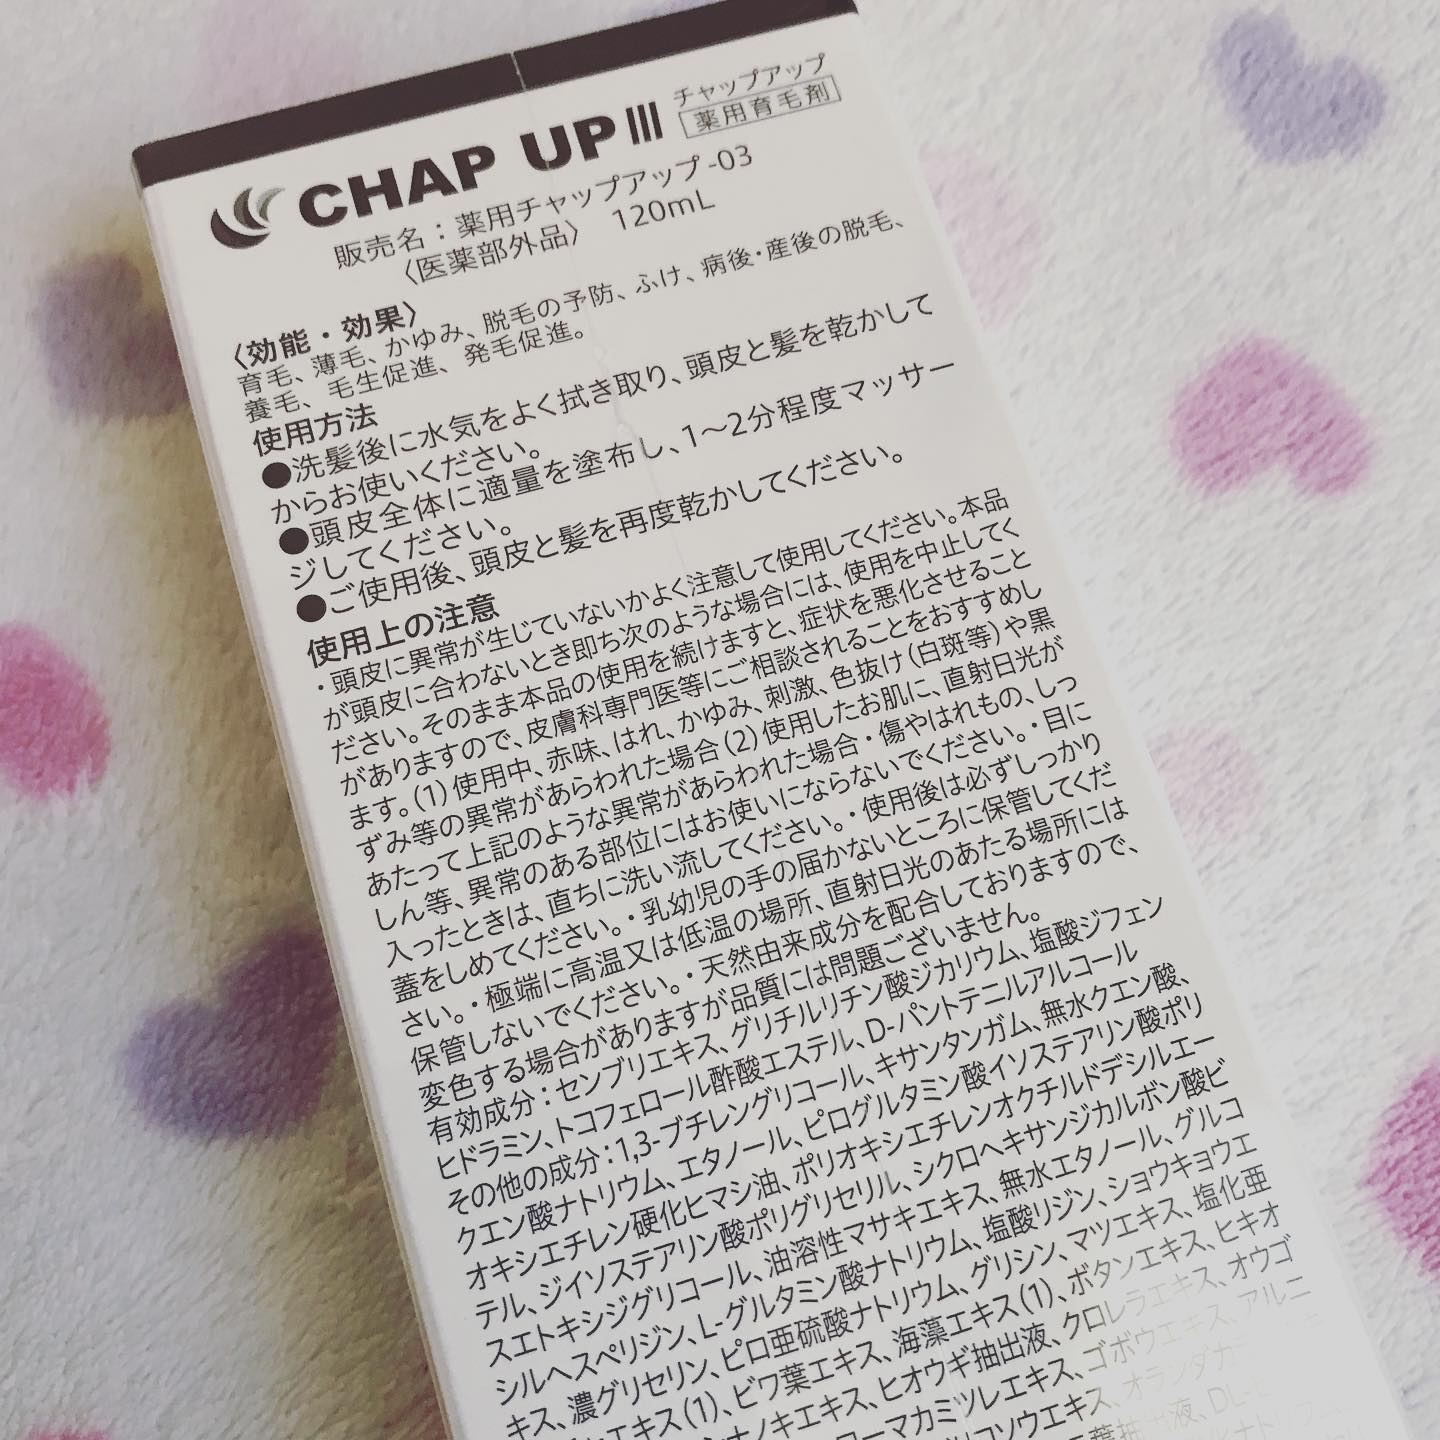 チャップアップ
CHAP UP III 薬用育毛剤
販売名：薬用チャップアップ-03
〈医薬部外品〉 120mL
〈効能・効果〉
育毛、薄毛、かゆみ、脱毛の予防、ふけ、病後・産後の脱毛、
養毛、毛生促進、発毛促進。
使用方法
●洗髪後に水気をよく拭き取り、頭皮と髪を乾かして
からお使いください。
●頭皮全体に適量を塗布し、1〜2分程度マッサー
ジしてください。
●ご使用後、頭皮と髪を再度乾かしてください。
使用上の注意
・頭皮に異常が生じていないかよく注意して使用してください。本品
が頭皮に合わないとき即ち次のような場合には、使用を中止してく
ださい。そのまま本品の使用を続けますと、症状を悪化させること
がありますので、皮膚科専門医等にご相談されることをおすすめし
ます。(1)使用中、赤味、はれ、かゆみ、刺激、色抜け(白斑等)や黒
ずみ等の異常があらわれた場合(2)使用したお肌に、直射日光が
あたって上記のような異常があらわれた場合・傷やはれもの、しっ
しん等、異常のある部位にはお使いにならないでください。・目に
入ったときは、直ちに洗い流してください。・使用後は必ずしっかり
蓋をしめてください。・乳幼児の手の届かないところに保管してくだ
さい。・極端に高温又は低温の場所、直射日光のあたる場所には
保管しないでください。・天然由来成分を配合しておりますので、
変色する場合がありますが品質には問題ございません。
有効成分：センブリエキス、グリチルリチン酸ジカリウム、塩酸ジフェン
ヒドラミン、トコフェロール酢酸エステル、D-パントテニルアルコール
その他の成分：1,3-ブチレングリコール、キサンタンガム、無水クエン酸、
クエン酸ナトリウム、エタノール、ピログルタミン酸イソステアリン酸ポリ
オキシエチレン硬化ヒマシ油、ポリオキシエチレンオクチルドデシルエー
テル、ジイソステアリン酸ポリグリセリル、シクロヘキサンジカルボン酸ビ
スエトキシジグリコール、油溶性マサキエキス、無水エタノール、グルコ
シルヘスペリジン、L-グルタミン酸ナトリウム、塩酸リジン、ショウキョウエ
キス、濃グリセリン、ピロ亜硫酸ナトリウム、グリシン、マツエキス、塩化亜
エキス(1)、ビワ葉エキス、海藻エキス(1)、ボタンエキス、ヒキオ
ナノキエキス、ヒオウギ抽出液、クロレラエキス、オウゴ
ローマカミツレエキス、ゴボウエキス、アルニ
コソウエキス、オランダ
葉抽出液、DL-